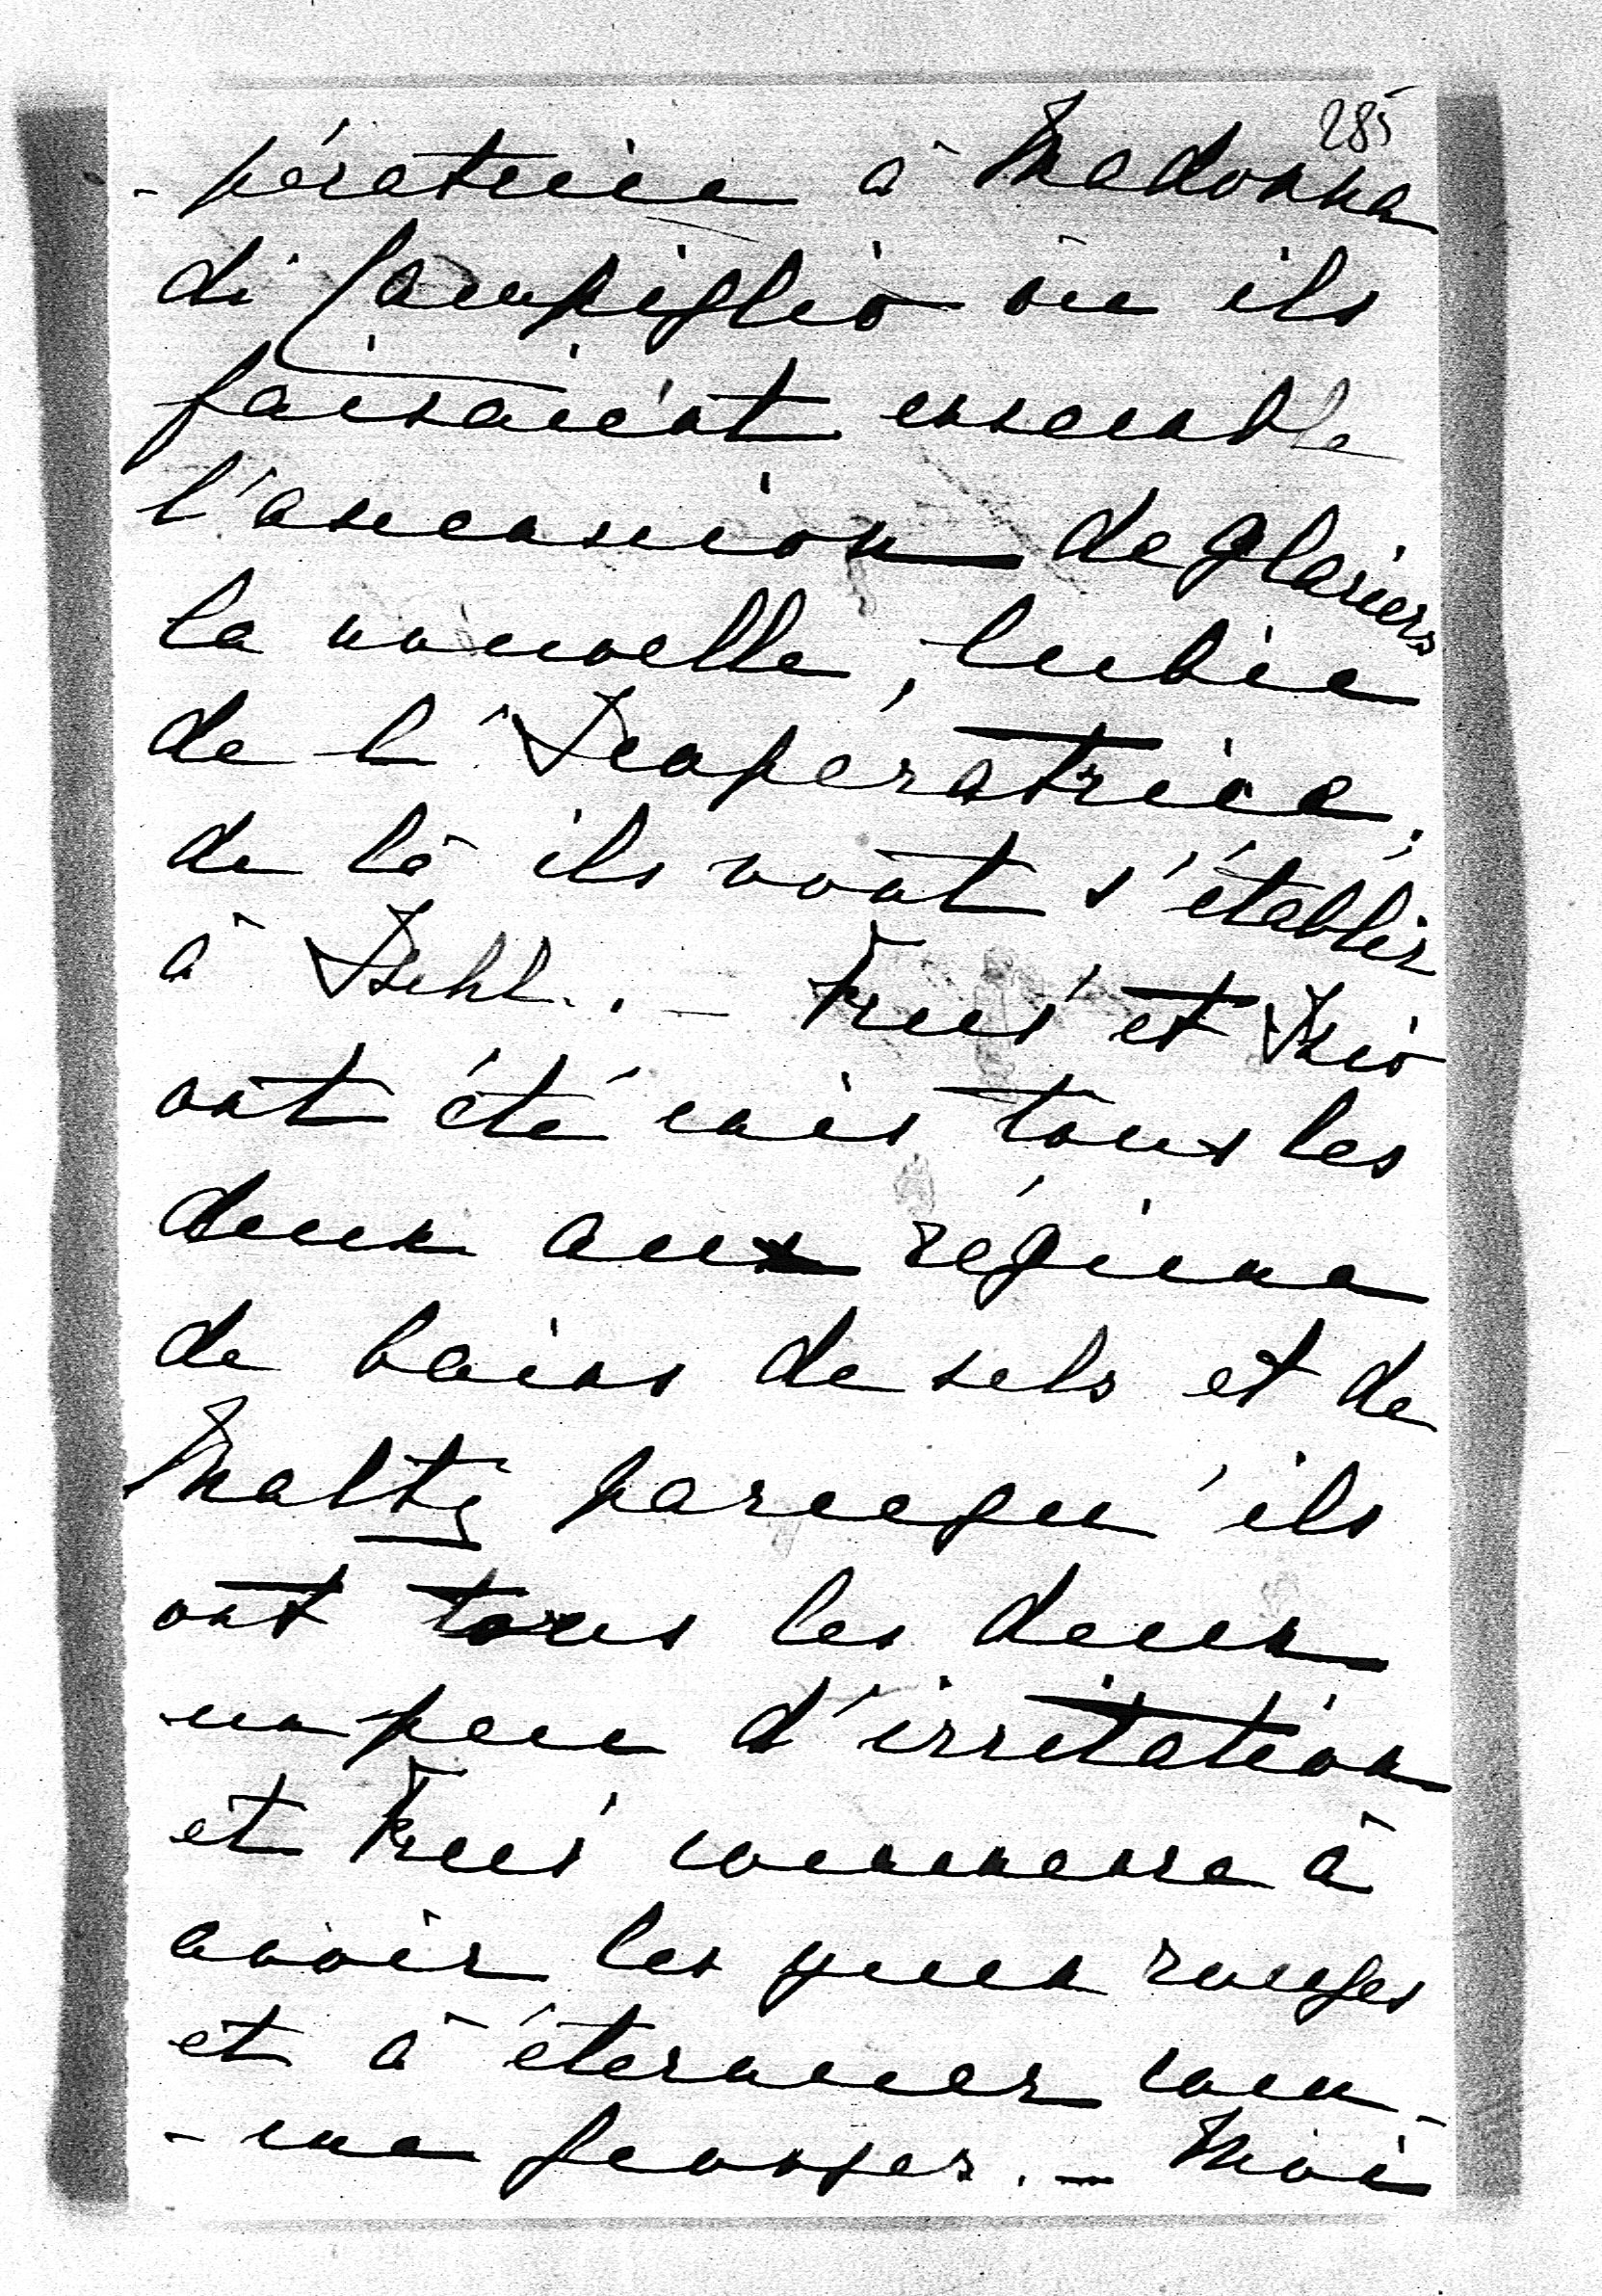 285
- pératrice à Madonna
di Campiglio où ils
faisaient ensemble
l'ascension de glaciers
la nouvelle, lubie
de l'Impératrice,
de là ils vont s'établir
à Ischl. - et
ont été mis tous les
deux aux régime
de bains de sels et de
Maltz parcequ'ils
ont tous les deux
un peu d'irritation
et commence à
avoir les yeux rouges
et à éternuer com-
- me Georges. - Moi